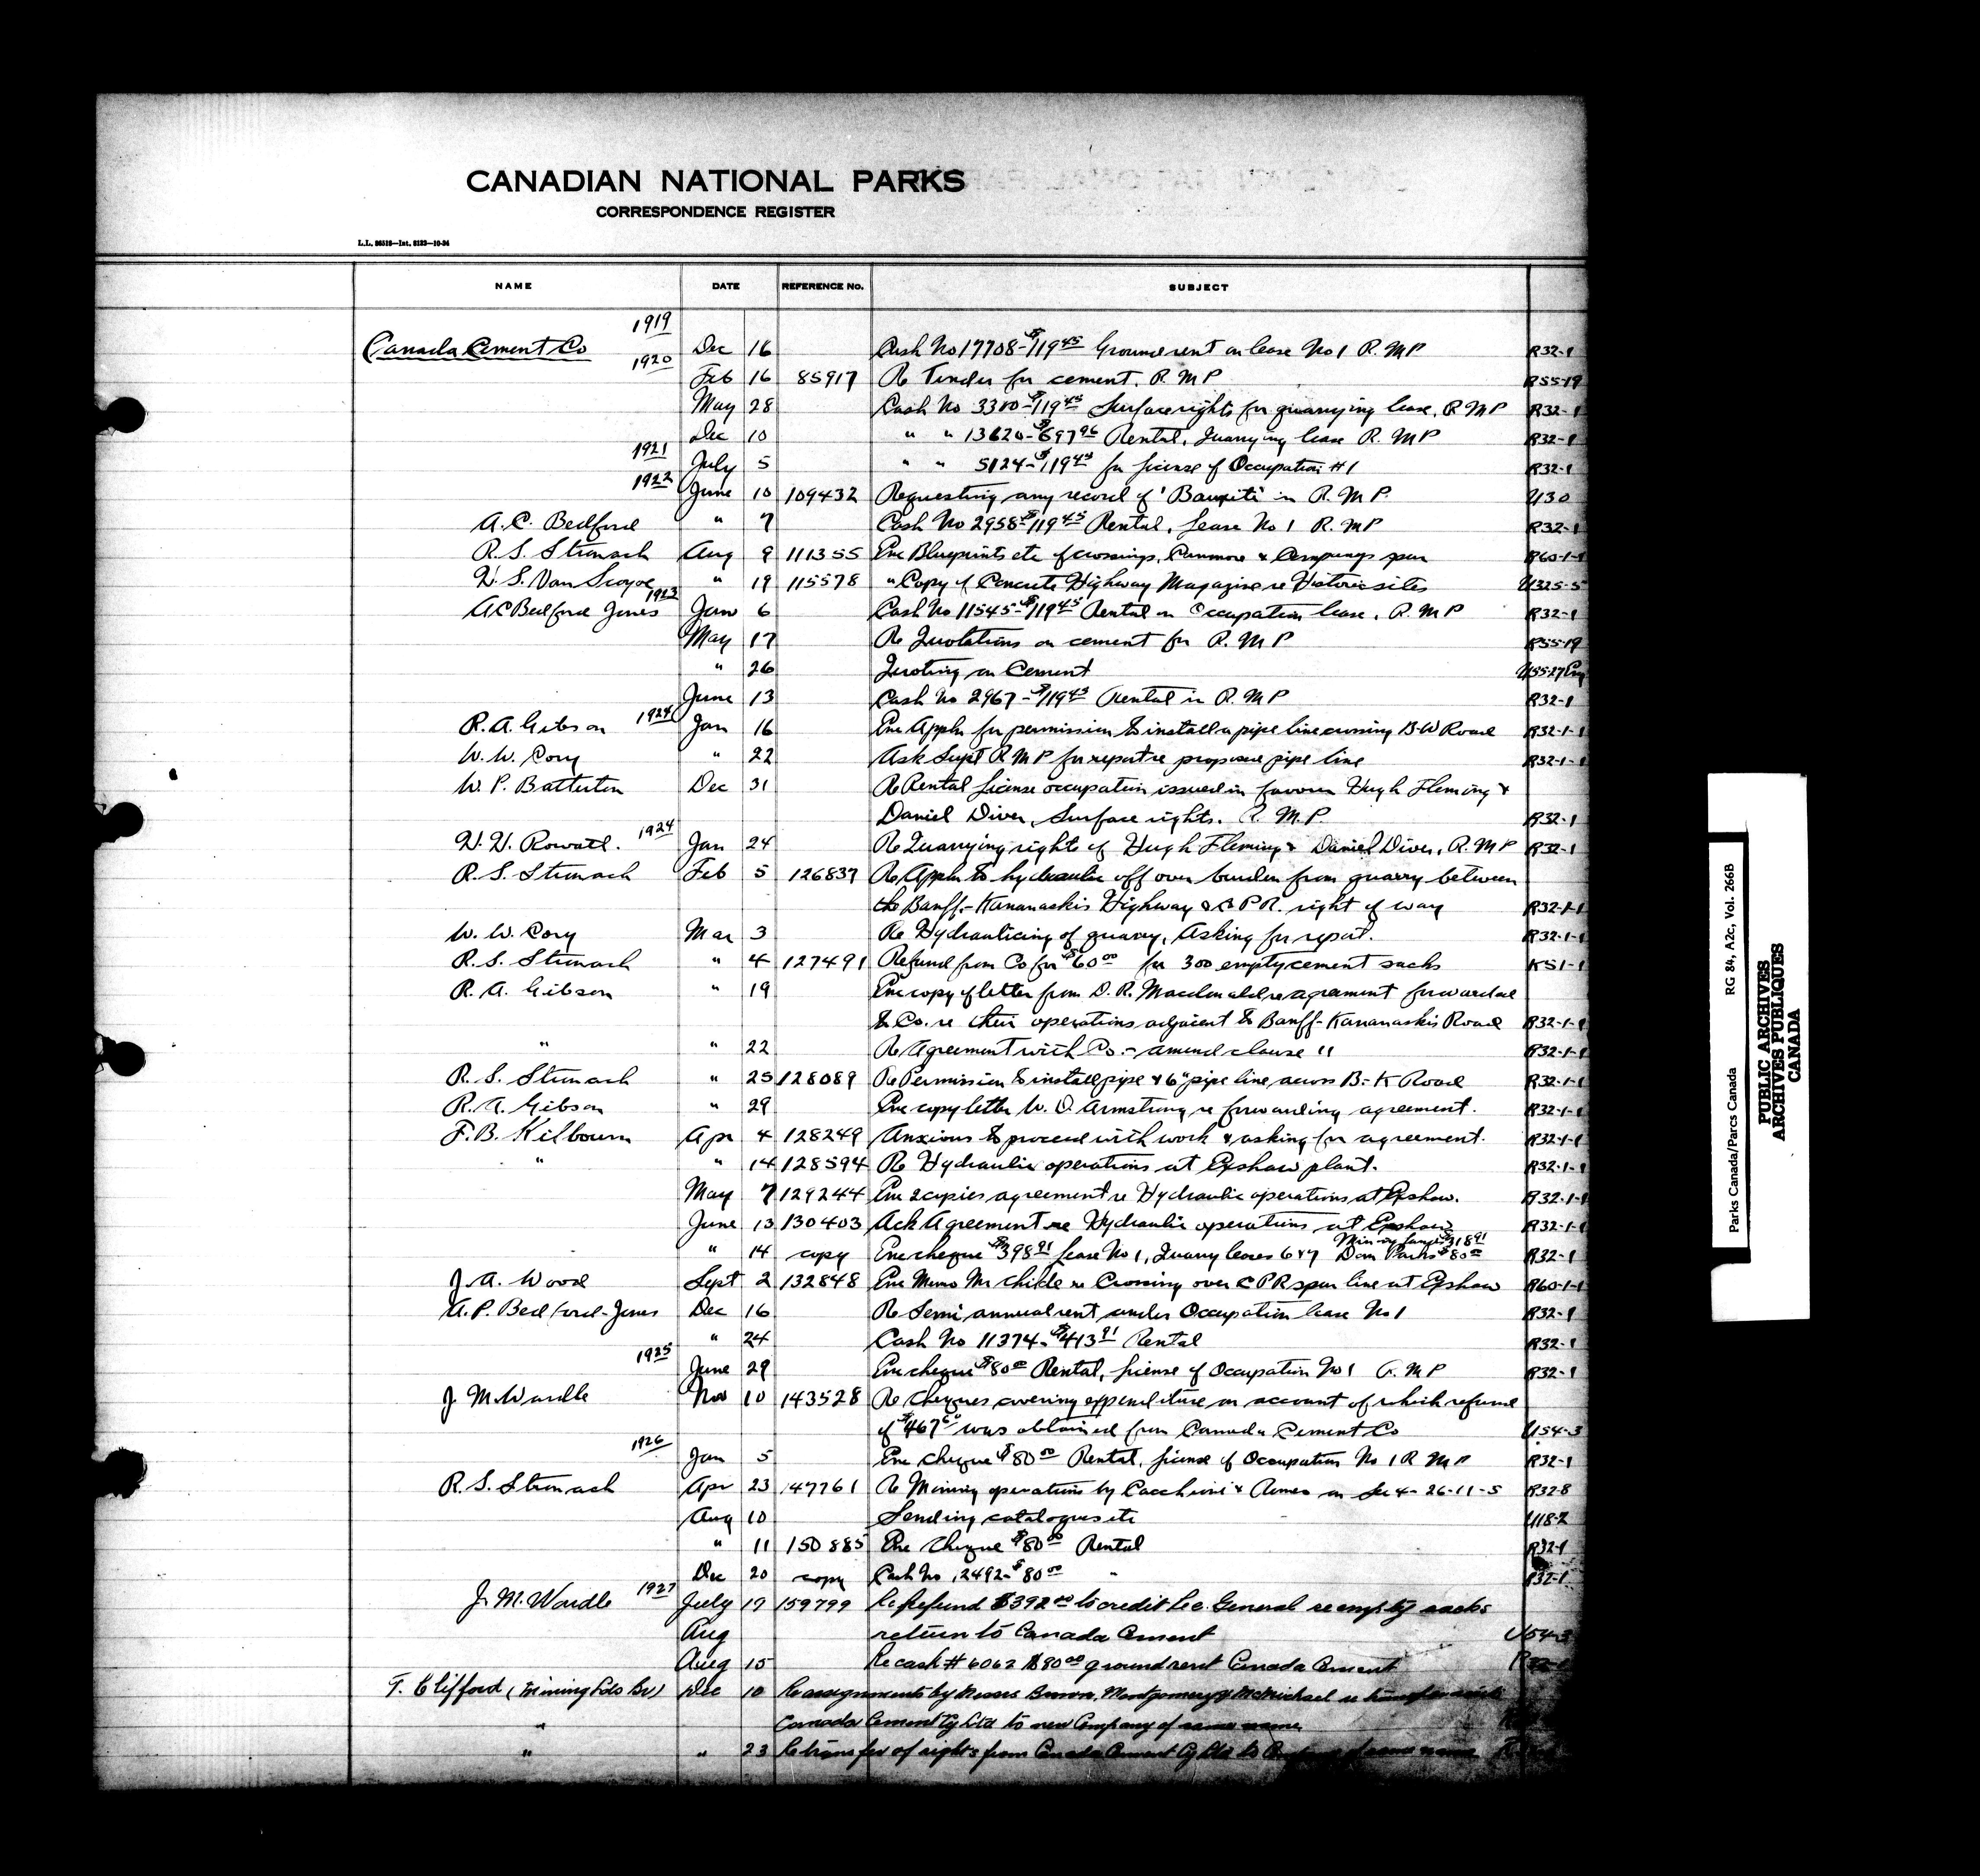 CANADIAN NATIONAL PARKS
CORRESPONDENCE REGISTER
L.L. 96518—Int. 8133—10-34
NAME DATE REFERENCE No. SUBJECT
1919
Canada Cement Co Dec 16 Cash No 17708-$119.45 Ground rent on lease No 1 R. M P R32-1
1920 Feb 16 85917 Re Tender for cement. R. M P R55-19
May 28 Cash No 3380-$119.45 Surface rights for quarrying lease, R M P R32-1
Dec 10 " " 13620-$697.96 Rental, Quarrying lease R. M P R32-1
1921 July 5 " " 5124-$119.45 for license of Occupation #1 R32-1
1922 June 10 109432 Requesting any record of 'Bauxite' in R. M P. U30
A. C. Bedford " 7 Cash No 2958-$119.45 Rental, Lease No 1 R. M P R32-1
R. S. Stronach Aug 9 111355 Enc Blueprints etc of crossings, Canmore & spur R60-1-1
H. S. Van Scoyoc " 19 115578 " Copy of Concrete Highway Magazine re Historic sites U325-5
1923
A C Bedford Jones Jan 6 Cash No 11545-$119.45 Rental on Occupation lease, R. M P R32-1
May 17 Re Quotations on cement for R. M P R55-19
" 26 Quoting on Cement U55-27 Eng
June 13 Cash No 2967-$119.45 Rental in R. M P R32-1
R. A. Gibson 1924 Jan 16 Enc Appln for permission to install a pipe line crossing B-W Road R32-1-1
W. W. Cory " 22 Ask Supt R M P for report re propose pipe line R32-1-1
W. P. Batterton Dec 31 Re Rental license occupation issued in favour Hugh Fleming &
Daniel Diver, Surface rights. R. M. P. R32-1
H. H. Rowatt. 1924 Jan 24 Re Quarrying rights of Hugh Fleming & Daniel Diver, R. M P R32-1
R. S. Stronach Feb 5 126837 Re Appln to hydraulic off over burden from quarry between
the Banff-Kananaskis Highway & C P R. right of way R32-1-1
W. W. Cory Mar 3 Re Hydraulicing of quarry, Asking for report. R32-1-1
R. S. Stronach " 4 127491 Refund from Co for $60.00 for 300 empty cement sacks R51-1
R. A. Gibson " 19 Enc copy of letter from D. R. Macdonald re agreement forwarded
to Co. re their operations adjacent to Banff-Kananaskis Road R32-1-1
" " 22 Re Agreement with Co.- amend clause 11 R32-1-1
R. S. Stronach " 25 128089 Re Permission to install pipe & 6" pipe line across B-K Road R32-1-1
R. A. Gibson " 29 Enc copy letter W. D. Armstrong re forwarding agreement. R32-1-1
F. B. Kilbourn Apr 4 128249 Anxious to proceed with work & asking for agreement. R32-1-1
" " 14 128594 Re Hydraulic operations at Exshaw plant. R32-1-1
May 7 129244 Enc 2 copies agreement re Hydraulic operations at Exshaw. R32-1-1
June 13 130403 Ack Agreement re Hydraulic operations at Exshaw R32-1-1
" 14 copy Enc cheque $398.91 Lease No 1, Quarry leases 6 & 7 Mining Lands $318.91 Dom Parks $80.00 R32-1
J. A. Wood Sept 2 132848 Enc Memo Mr Childe re Crossing over C P R spur line at Exshaw R60-1-1
A. P. Bedford-Jones Dec 16 Re Semi annual rent under Occupation lease No 1 R32-1
" 24 Cash No 11374-$413.91 Rental R32-1
1925 June 29 Enc cheque $80.00 Rental, license of Occupation No 1 R. M P R32-1
J M. Wardle Nov 10 143528 Re Cheques covering expenditure on account of which refund
of $467.60 was obtained from Canada Cement Co U54-3
1926 Jan 5 Enc cheque $80.00 Rental, license of Occupation No 1 R M P R32-1
R. S. Stronach Apr 23 147761 Re Mining operations by & on Sec 4-26-11-5 R32-8
Aug 10 Sending catalogues etc U18-2
" 11 150885 Enc Cheque $80.00 Rental R32-1
Dec 20 copy Cash No 12492-$80.00 " R32-1
J. M. Wardle 1927 July 19 159799 Re Refund $392.00 to credit Rec. General re empty sacks
Aug return to Canada Cement U54-3
Aug 15 Re cash # 6062 $80.00 ground rent Canada Cement
T. Clifford (Mining Lds Br) Dec 10 Re assignments by Messrs Brown, Montgomery & McMichael re transfer
" Canada Cement Cy Ltd to new Company of same name
" " 23 Re transfer of rights from Canada Cement Cy Ltd to of same name
Parks Canada/Parcs Canada RG 84, A2c, Vol. 266B
PUBLIC ARCHIVES
ARCHIVES PUBLIQUES
CANADA